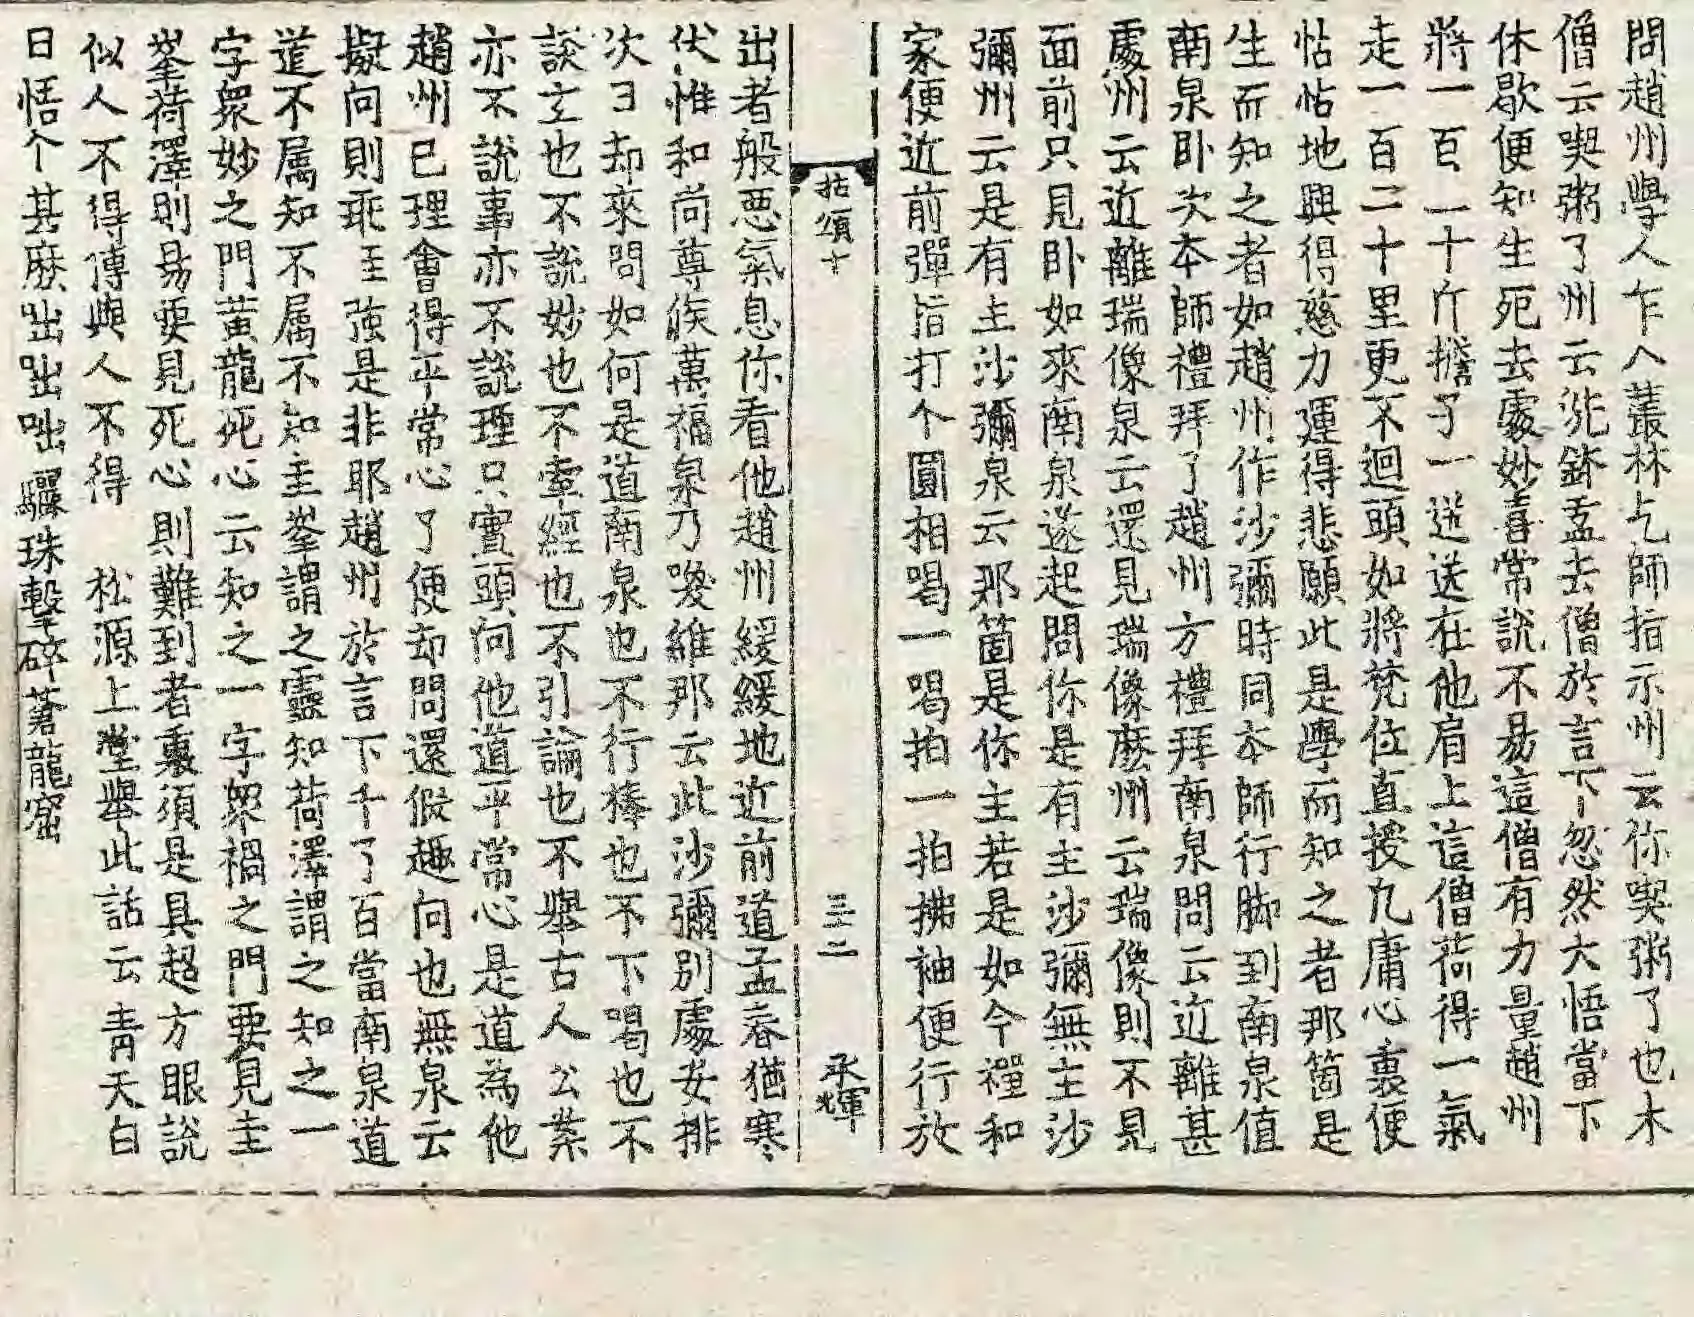 問趙州學人乍入叢林乞師指示州云你喫粥了也未
僧云喫粥了州云洗鉢盂去僧於言下忽然大悟當下
休歇便知生死去處妙喜常說不易這僧有力量趙州
將一百二十斤擔子一送送在他肩上這僧荷得一氣
走一百二十里更不迴頭如將梵位直授凡庸心裏便
怗怗地興得慈力運得悲願此是學而知之者那箇是
生而知之者如趙州作沙彌時同本師行脚到南泉值
南泉卧次本師禮拜了趙州方禮拜南泉問云近離甚
處州云近離瑞像泉云還見瑞像麽州云瑞像則不見
面前只見卧如來南泉遂起問你是有主沙彌無主沙
彌州云是有主沙彌泉云那箇是你主若是如今禪和
家便近前彈指打个圓相喝一喝拍一拍拂袖便行放
拈頌十
三十二
承輝
出者般惡氣息你看他趙州緩緩地近前道孟春猶寒
伏惟和尚尊候萬福泉乃喚維那云此沙彌別處安排
次日却來問如何是道南泉也不行捧也不下喝也不
談玄也不說妙也不牽經也不引論也不舉古人公案
亦不說事亦不說理只實頭向他道平常心是道為他
趙州已理會得平常心了便却問還假趣向也無泉云
擬向則乖至強是非耶趙州於言下千了百當南泉道
道不属知不属不知圭峯謂之靈知荷澤謂之知之一
字衆妙之門黃龍死心云知之一字衆禍之門要見圭
峯荷澤則易要見死心則難到者裏須是具超方眼說
似人不得傳與人不得　松源上堂舉此話云青天白
日悟个甚麽咄咄咄驪珠擊碎蒼龍窟